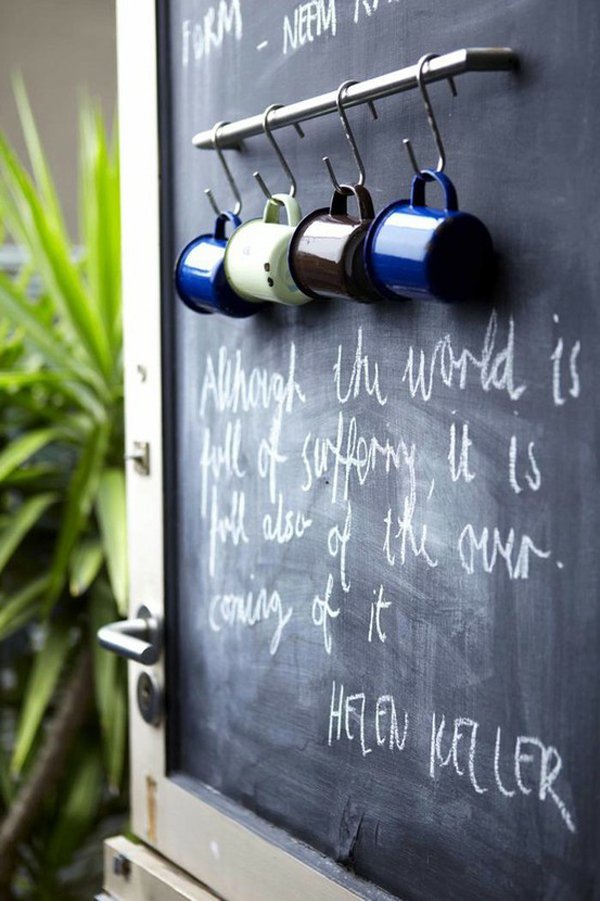 FORM - NEEM
Although the world is
full of suffering, it is
full also of the over-
coming of it
HELEN KELLER